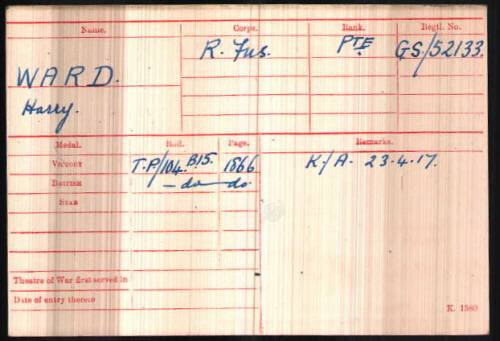 Name. Corps. Rank. Regtl. No.
WARD. R. Fus. PTE GS/52133.
Harry.
Medal. Roll. Page. Remarks.
VICTORY T.P/104.B15. 1866 K/A. 23.4.17.
BRITISH – do – do.
STAR
Theatre of War first served in
Date of entry therein
K. 1380